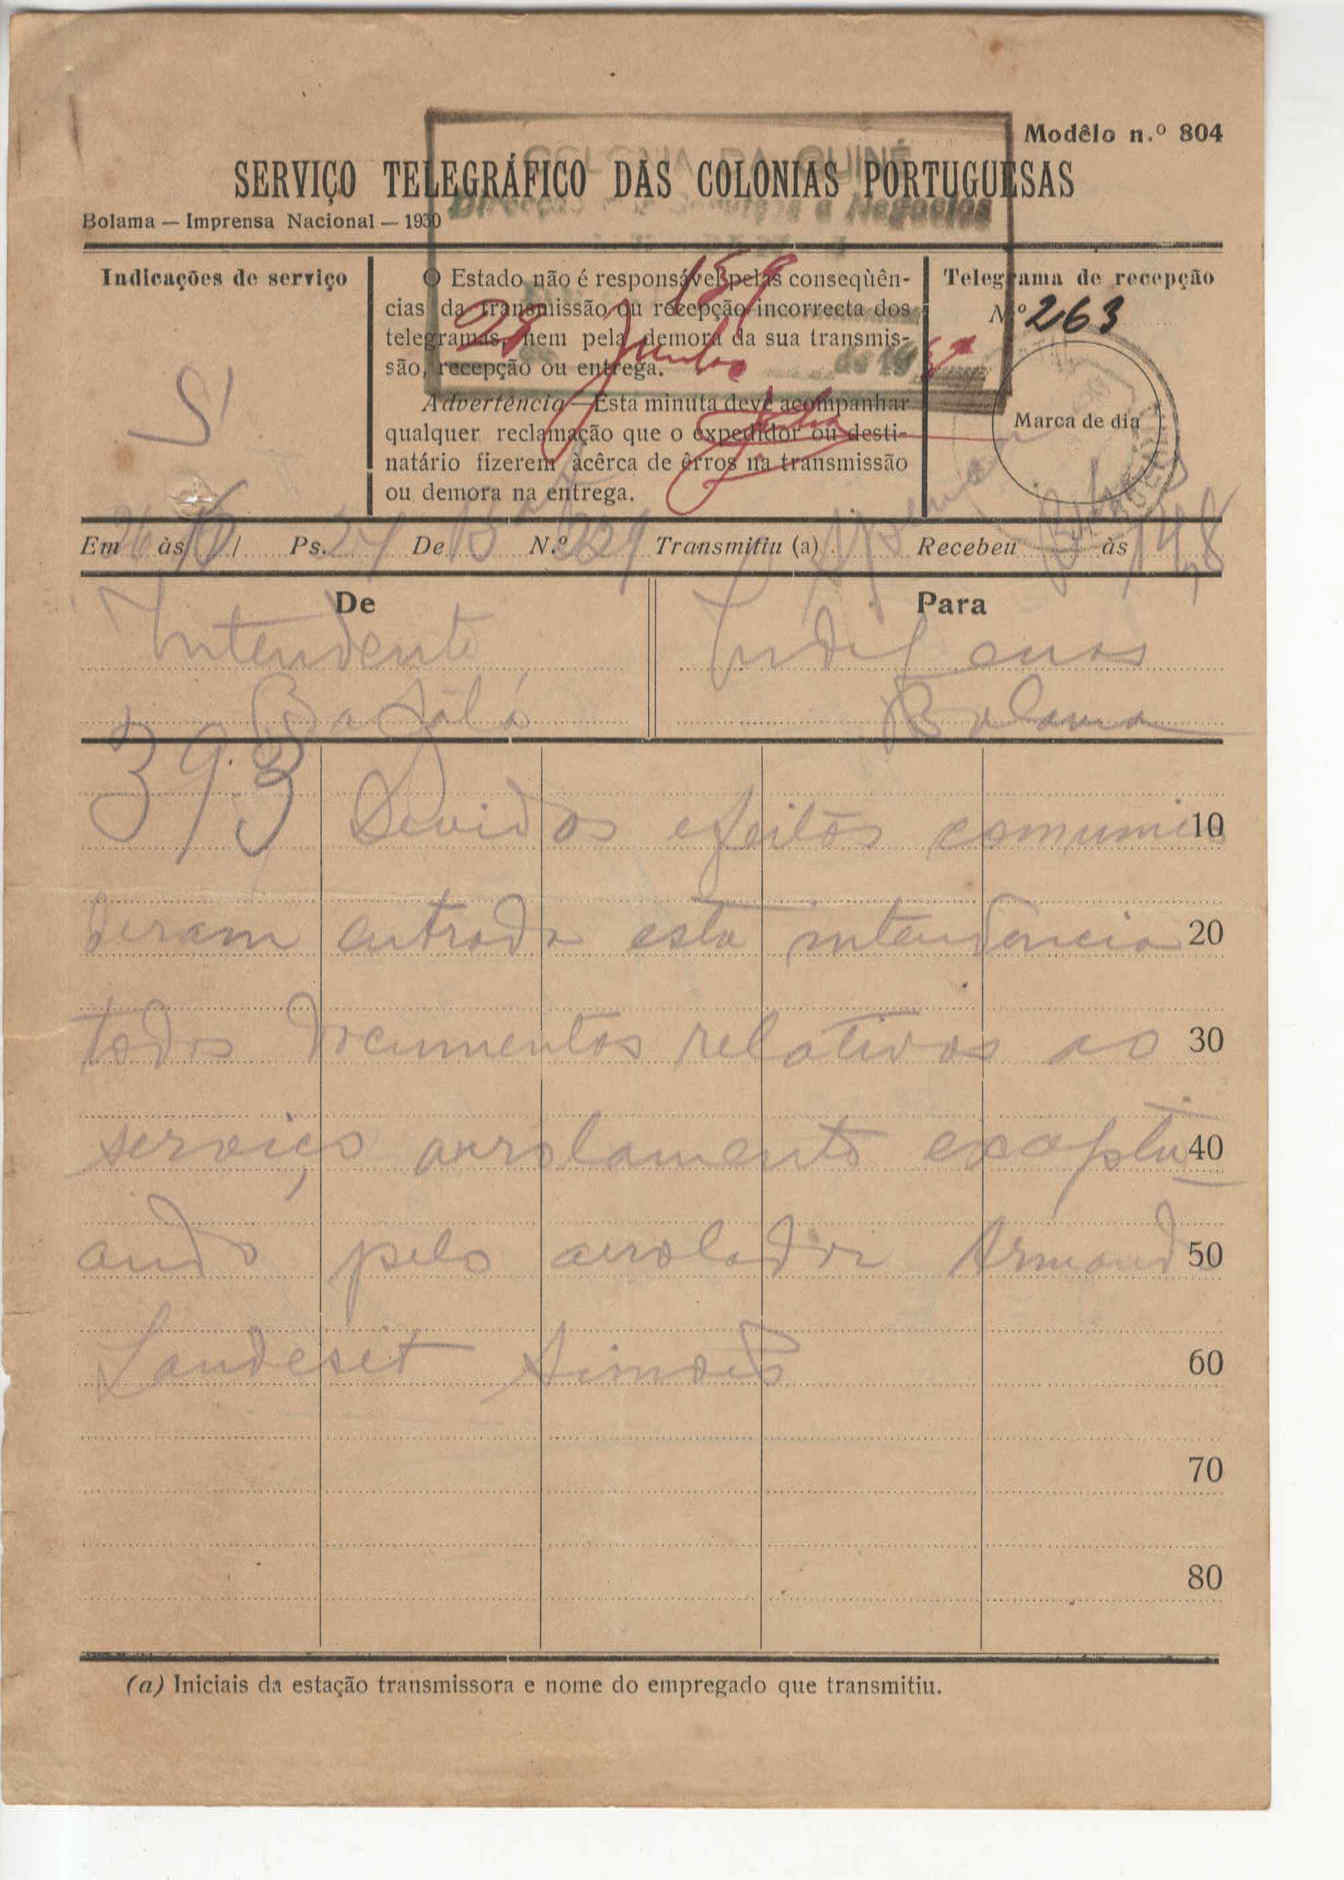 Modêlo n.º 804
COLONIA DA GUINÉ
SERVIÇO TELEGRÁFICO DAS COLONIAS PORTUGUESAS
Negocios
Bolama — Imprensa Nacional — 1930
Indicações de serviço
S
O Estado não é responsável pelas conseqùên-
cias da transmissão ou recepção incorrecta dos
telegramas, nem pela demora da sua transmis-
são, recepção ou entrega.
Advertência—Esta minuta deve acompanhar
qualquer reclamação que o expedidor ou desti-
natário fizerem àcêrca de êrros na transmissão
ou demora na entrega.
159
28 Junho
de 19
Telegrama de recepção
N.º 263
Marca de dia
Em às / Ps. 24 De N.º 229 Transmitiu (a) Recebeu às
De
Intendente
Bafatá
Para
Indigenas
Bolama
393 Devidos efeitos comunico 10
deram entrada esta intendencia 20
todos documentos relativos ao 30
serviço arrolamento exceptu 40
ando pelo arrolador Armando 50
Landeset Simões 60
70
80
(a) Iniciais da estação transmissora e nome do empregado que transmitiu.